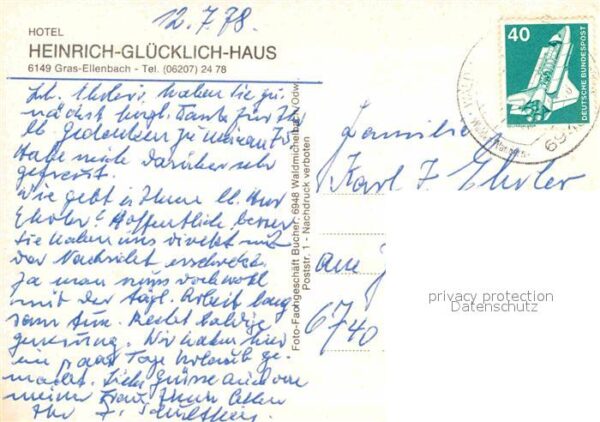 12.7.78.
HOTEL
HEINRICH-GLÜCKLICH-HAUS
6149 Gras-Ellenbach - Tel. (06207) 24 78
Lb. Ehrler's, haben Sie zu-
nächst herzl. Dank für Ihr
lb. Gedenken zu meinem
Habe mich darüber sehr
gefreut.
Wie geht es Ihnen lb. Herr
Ehrler? Hoffentlich besser
Sie haben uns direkt mit
der Nachricht erschreckt.
Ja man muss doch wohl
mit der tägl. Arbeit lang
sam tun. Recht baldige
Genesung. Wir haben hier
ein paar Tage Urlaub ge-
macht. Liebe Grüsse auch von
meiner Frau Ihnen allen
Ihr
Foto-Fachgeschäft Bucher, 6948 Waldmichelbach/Odw.
Poststr. 1 - Nachdruck verboten
40
DEUTSCHE BUNDESPOST
Familie
Karl J. Ehrler
am
6740
privacy protection
Datenschutz